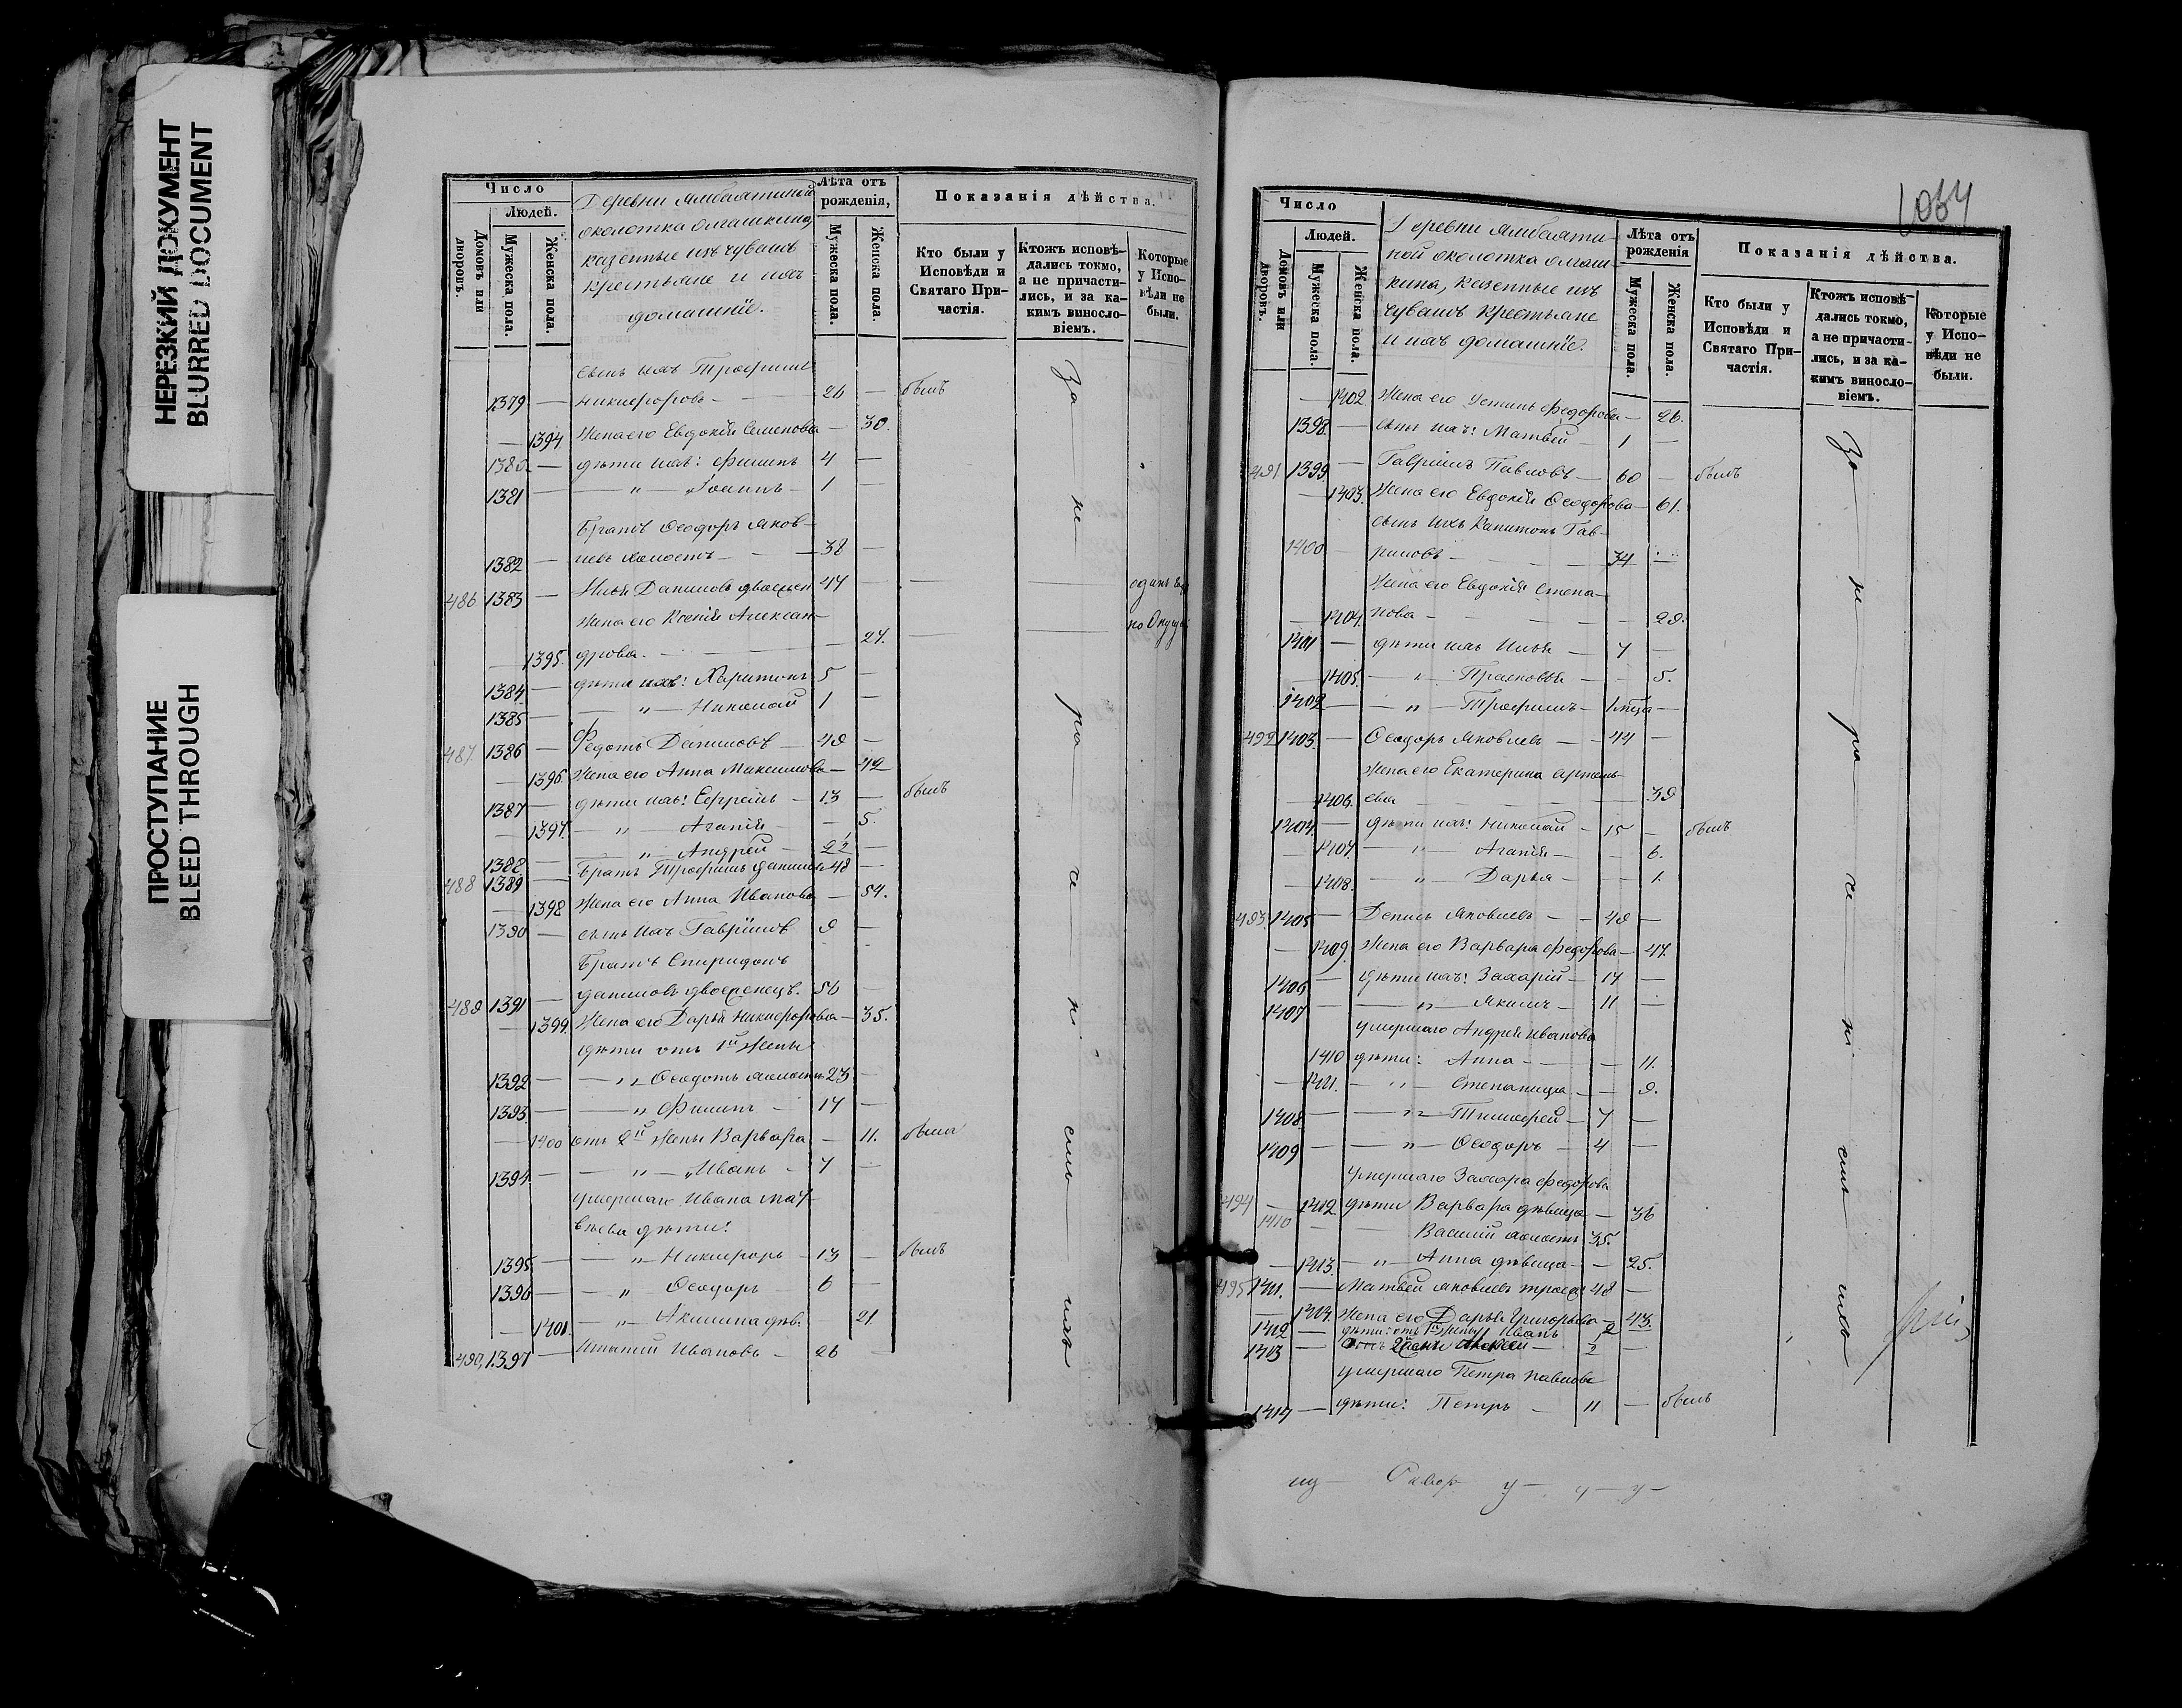 НЕРЕЗКИЙ ДОКУМЕНТ
BLURRED DOCUMENT
ПРОСТУПАНИЕ
BLEED THROUGH
Число
Людей.
Домовъ или дворовъ.
Мужеска пола.
Женска пола.
Деревни Ямбахтиной
околотка
казенные изъ чувашъ
крестьяне и ихъ
домашніе.
Лѣта отъ рожденія,
Мужеска пола.
Женска пола.
Показанія дѣйства.
Кто были у Исповѣди и Святаго Причастія.
Ктожъ исповѣдались токмо, а не причастились, и за какимъ винословіемъ.
Которые у Исповѣди не были.
сынъ ихъ Трофимъ
1379 — Никифоровъ — 26 — былъ
— 1394 Жена его Евдокія Семенова — 30.
1380 — дѣти ихъ: Филипъ 4 —
1381 — " — Іоаннъ — 1 —
Братъ Ѳеодоръ Яков-
1382 — левъ холостъ — 38 —
486 1383 — Илья Даниловъ двоежен 47 —
жена его Ксенія Алексан-
— 1395. дрова. — 27.
1384 — дѣти ихъ: Харитонъ 5 —
1385 — " — Николай 1 —
487. 1386 — Федотъ Даниловъ — 49 —
— 1396. Жена его Анна Максимова — 42
1387 — дѣти ихъ: Ефремъ — 13 — былъ
— 1397. — " — Агапія — 5.
1388. — " — Андрей —
488 1389 — Братъ Трофимъ Даниловъ 48 —
— 1398 Жена его Анна Иванова — 54.
1390 — сынъ ихъ Гавріилъ 9 —
Братъ Спиридонъ
489 1391 — Даниловъ двоеженецъ. 56 —
— 1399. Жена его Дарья Никифорова — 35.
дѣти отъ 1й жены
1392 — " Ѳеодотъ холостъ 23 —
1393 — " Филипъ — 17 —
— 1400 отъ 2й жены Варвара — 11. была
1394 — " — Иванъ — 7 —
умершаго Ивана Мат-
вѣева дѣти:
1395 — " — Никифоръ — 13 — былъ
1396 — " — Ѳеодоръ 6 —
— 1401. — " — Акилина дѣв. 21
490, 1397 — Игнатій Ивановъ — 26
За не ра че ні емъ ихъ
1034
Число
Людей.
Домовъ или дворовъ.
Мужеска пола.
Женска пола.
Деревни Ямбахти-
ной околотка
казенные изъ
чувашъ крестьяне
и ихъ домашніе.
Лѣта отъ рожденія
Мужеска пола.
Женска пола.
Показанія дѣйства.
Кто были у Исповѣди и Святаго Причастія.
Ктожъ исповѣдались токмо, а не причастились, и за какимъ винословіемъ.
Которые у Исповѣди не были.
— 1402. Жена его Устинья Федорова — 26.
1398. — сынъ ихъ: Матвей — 1 —
491 1399 — Гавріилъ Павловъ — 60 — былъ
— 1403. Жена его Евдокія Ѳеодорова — 61.
сынъ ихъ Капитонъ Гав-
1400 — риловъ — 34 —
Жена его Евдокія Степа-
— 1404. нова — 29.
1401 — дѣти ихъ Илья — 7 —
— 1405. — " — Прасковья — 5.
1402 — " — Трофимъ —
492 1403. — Ѳеодоръ Яковлевъ — 44 —
Жена его Екатерина Артемь-
— 1406. ева — 39
1404. — дѣти ихъ: Николай — 15 — былъ
— 1407. — " — Агапія — 6.
— 1408. — " — Дарья — 1.
493 1405 — Денисъ Яковлевъ — 49 —
— 1409. Жена его Варвара Федорова — 47.
1406 — дѣти ихъ: Захарій — 17 —
1407 — " — Якимъ — 11 —
умершаго Андрея Иванова
1410 дѣти: Анна — 11.
— 1411. — " — Степанида — 9.
1408. — " — Тимофей — 7 —
1409 — " — Ѳеодоръ — 4 —
умершаго Захара Федорова
494 — 1412 дѣти Варвара дѣвица — 36
1410 Василій холостъ 35.
— 1413. — " — Анна дѣвица — 25.
495 1411. — Матвей Яковлевъ троеж 48 —
— 1414. Жена его Дарья Григорьева — 43.
1412 — дѣти: отъ 1й жены Иванъ
1413 — отъ 2й жены
умершаго Петра Павлова
1414 — дѣти: Петръ — 11 — былъ
За не ра че ні емъ ихъ